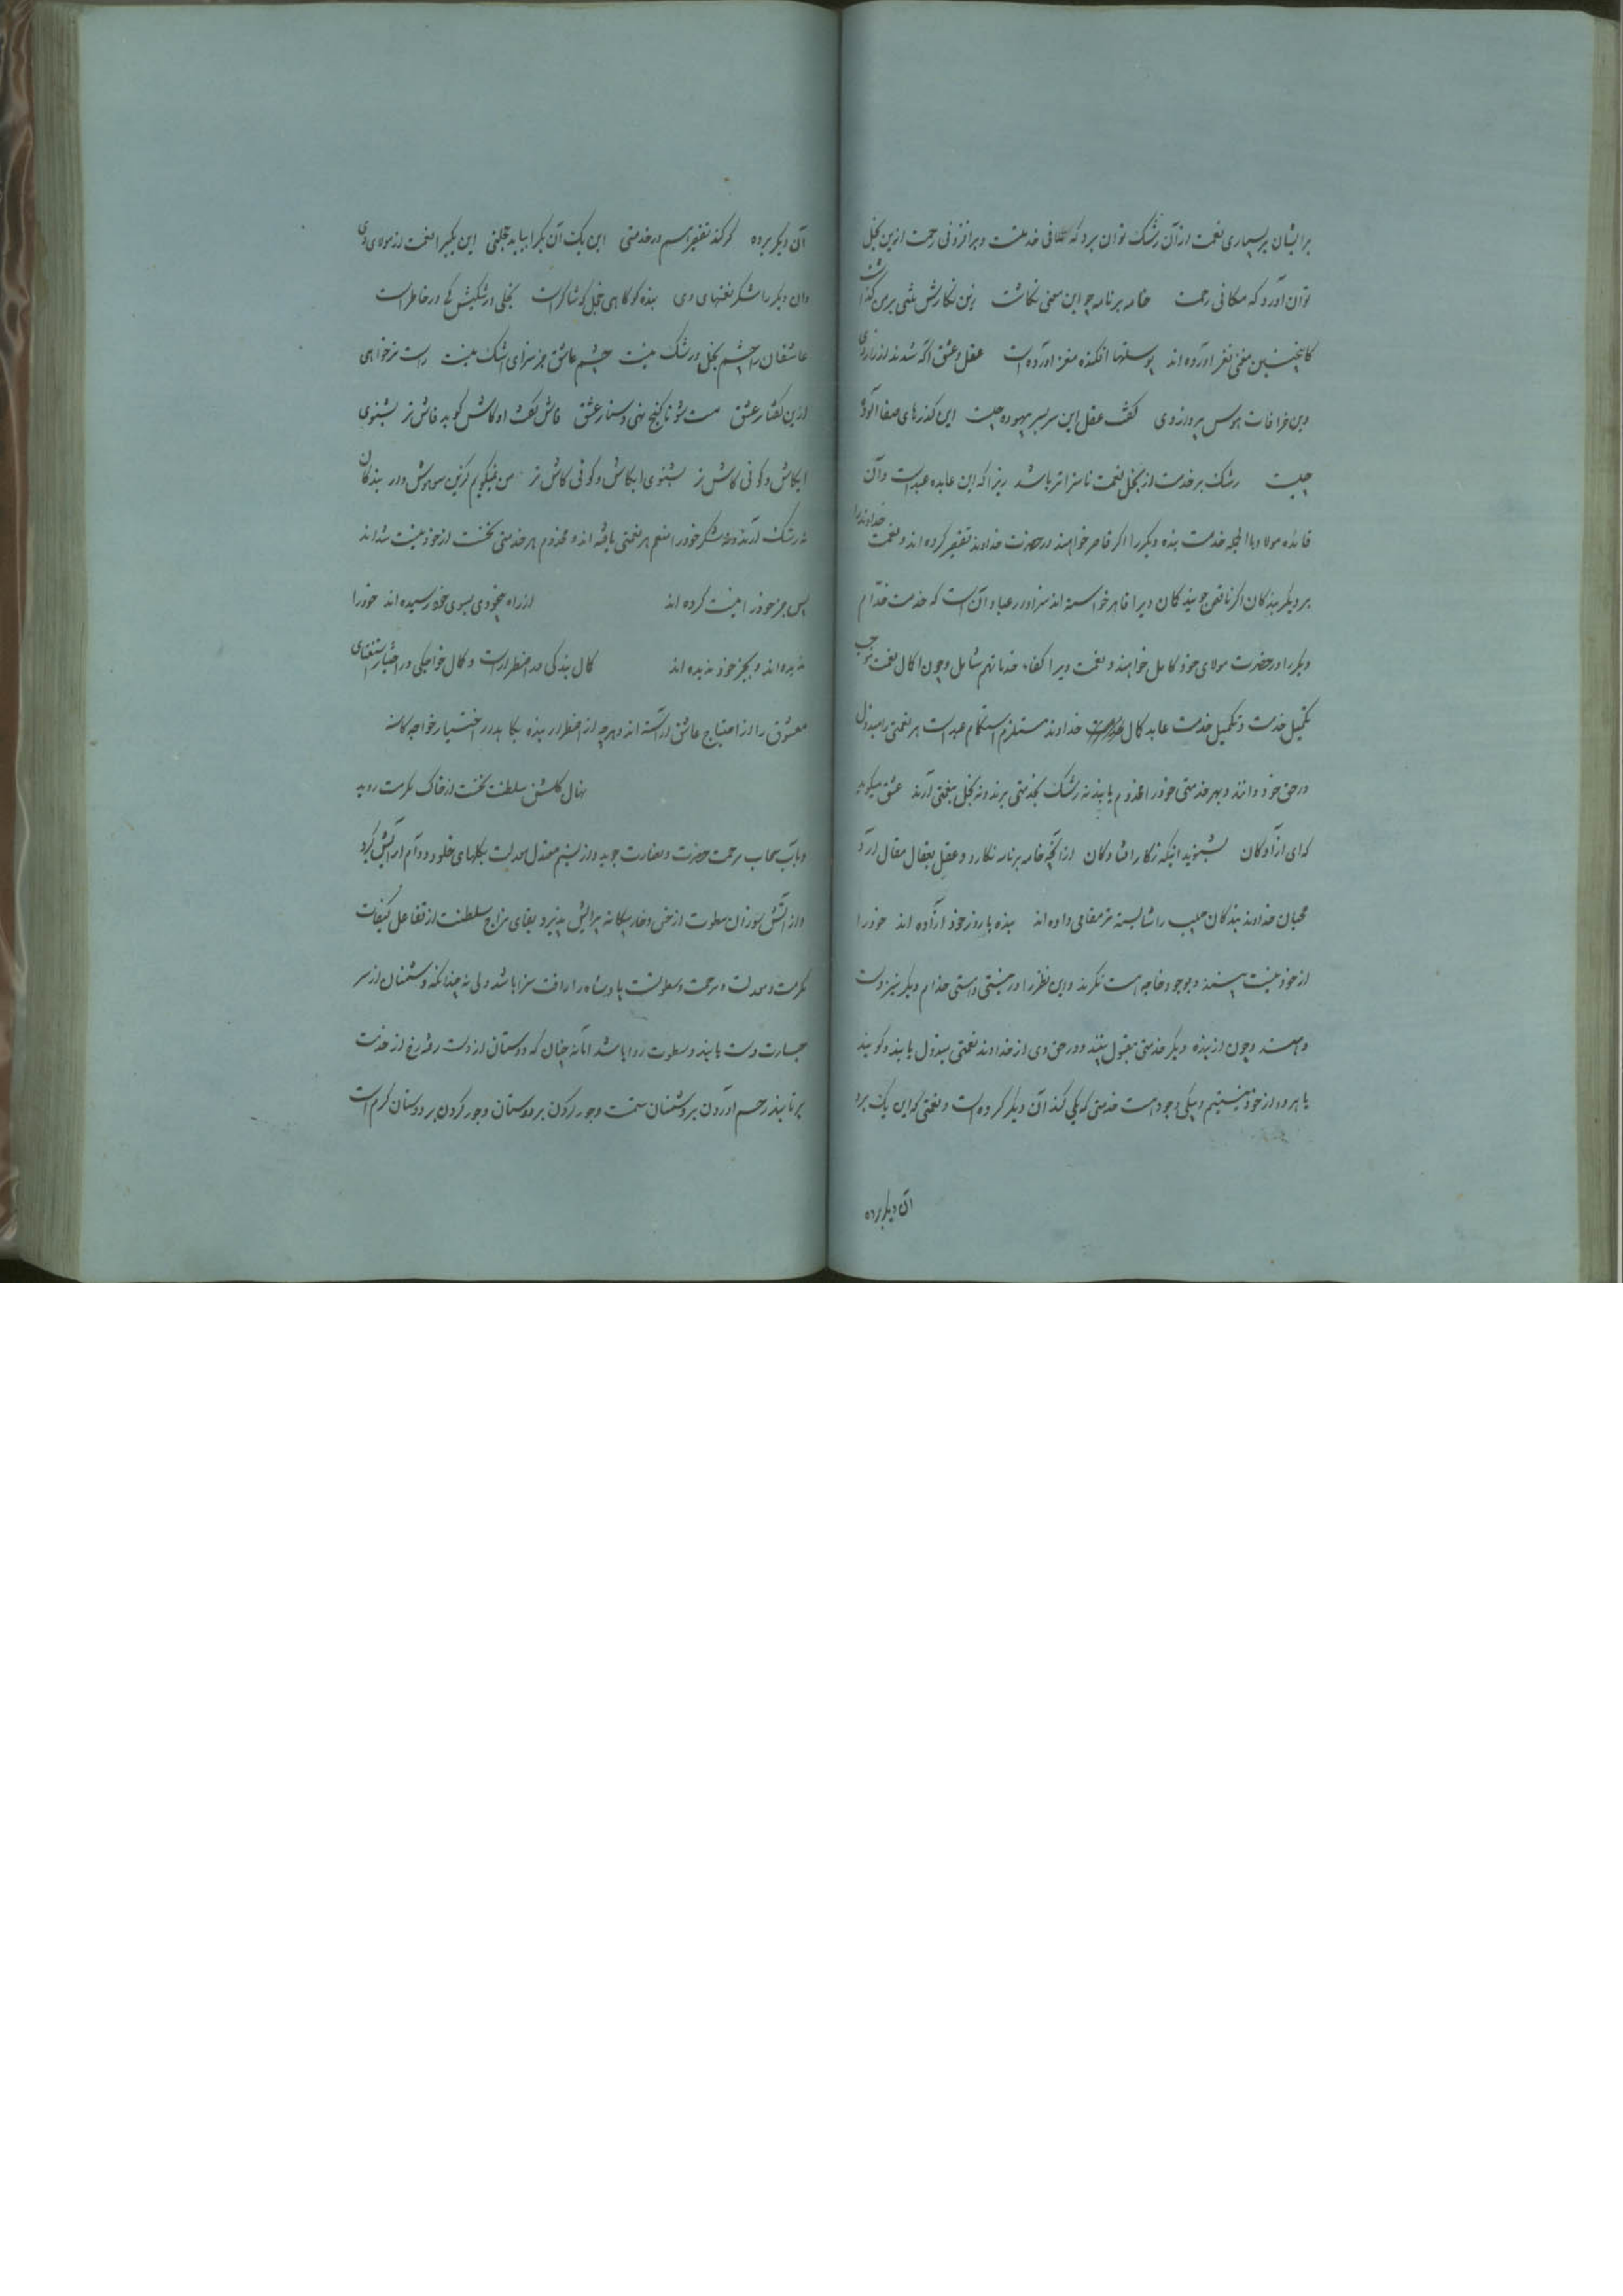 برایشان بر بسیاری نعمت از آن رشک توان برد که تلافی خدمتست و بر افزونی رحمت ازین بخل
توان آورد که مکافی رحمت خامه بر نامه چو این معنی نگاشت زین نگارش منتی بر من گذاشت
کاینچنین معنی نغز آورده اند پوستها افکنده مغز آورده است عقل و عشق آگه شدند از راز وی
وین خرافات هوس پرداز وی گفت عقل این سر بسر بیهوده چیست این گذرهای صفا آلوده
چیست رشک بر خدمت از بخل نعمت ناسزاتر باشد زیرا که این عابده عبد است و آن
فائده مولا و بالجمله خدمت بنده دیگر را اگر قاصر خواهند در حضرت خداوند تقصیر کرده اند و نعمت خداوند را
بر دیگر بندگان اگر ناقص جویند کان ویرا قاهر خواسته اند سزاوار عباد آن است که خدمت خدّام
دیگر را در حضرت مولای خود کامل خواهند و نعمت ویرا کفاء خدماتهم شامل و چون اکمال نعمت موجب
تکمیل خدمت و تکمیل خدمت عابد کمال خداوند مستلزم استکمال عبد است هر نعمتی را مبذول
در حق خود دانند و بهر خدمتی خود را مخدوم یابند نه رشک بخدمتی برند و نه بخل بنعمتی آرند عشق میگوید
که ای آزادگان بشنوید اینک ز کار افتادگان از آنچه خامه بر نامه نگارد و عقل بعقال مقال آرد
محبان خداوند بندگان حبیب را شایسته تر مقامی داده اند بنده یا روز خود آزاده اند خود را
از خود نیست بینند و بوجود خاجه هست نگرند و این نظر را در نیستی و هستی خدام دیگر نیز دوست
دهند و چون از بنده دیگر خدمتی مقبول بینند و در حق وی از خداوند نعمتی مبذول یابند و گویند
با هر دو از خود نیستیم و بیکی وجود هست خدمتی که یکی کند آن دیگر کرده است و نعمتی که این یک برد
آن دیگر برده
آن دیگر برده گر کند تقصیر اسم در خدمتی این یک آن یکرا بباید خجلتی این یکیرا نعمت از مولای وی
وان دیگر را شکر نعمتهای وی بنده کو گاهی خجل که شاکر است بخلی و رشکیش کی در خاطر است
عاشقان را چشم بخل و رشک نیست چشم عاشق جز سزای اشک نیست راست تر خواهی
ازین گفتار عشق مست شو تا کنج نهی دستار عشق فاش گفت او کاش گوید فاش تر بشنوی
ایکاش و گوئی کاش تر بشنوی ایکاش و گوئی کاش تر من نمیگویم کزین سو هوش دار بندگان
نه رشک آرند و نه شکر خود را منعم هر نعمتی یافته اند و مخدوم هر خدمتی نخست از خود نیست شده اند
پس جز خود را نیست کرده اند از راه بیخودی بسوی خود رسیده اند خود را
ندیده اند و بجز خود ندیده اند کمال بندگی در اضطرار است و کمال خواجگی در اختیار استغنای
معشوق را از احتیاج عاشق آراسته اند و هر چه از اضطرار بنده بکاهد در اختیار خواجه کاسته
نهال گلشن سلطنت نخست از خاک مکرمت روید
و بآب سحاب مرحمت خضرت و نضارت جوید و از نسیم معتدل معدلت بگلهای خلود و دوام آرایش گیرد
و از آتش سوزان سطوت از خس و خار بیگانه پیرایش پذیرد بقای مزاج سلطنت از تفاعل کیفیات
مکرمت و معدلت و مرحمت و سطوتست پادشاه را رافت سزا باشد ولی نه چندانکه دشمنان از سر
جسارت دست یابند و سطوت روا باشد اما نه چنان که دوستان از دست رفته رخ از خدمت
برتابند رحم آوردن بر دشمنان ستمست و جور کردن بر دوستان و جور کردن بر دوستان کرم است